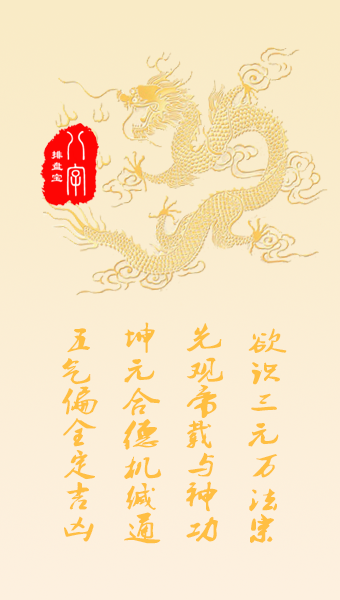 八字
排盘宝
欲识三元万法宗
先观帝载与神功
坤元合德机缄通
五气偏全定吉凶